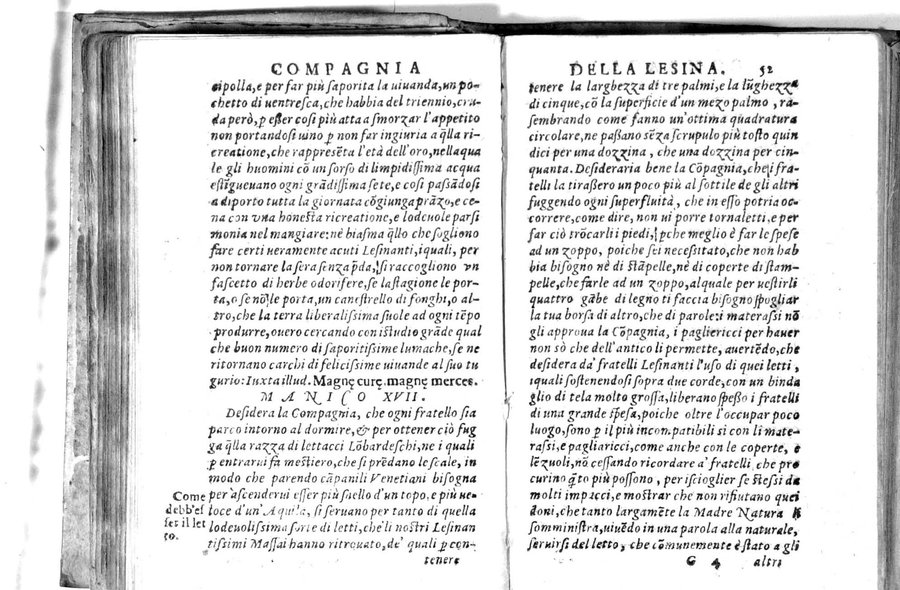 COMPAGNIA
cipolla,e per far più saporita la uiuanda,un po-
chetto di uentresca,che habbia del triennio,cru-
da però,p esser cosi più atta a smorzar l'appetito
non portandosi uino p non far ingiuria a q̃lla ri-
creatione,che rappresẽta l'età dell'oro,nella qua
le gli huomini cõ un sorso di limpidissima acqua
estĩgueuano ogni grãdissima sete,e cosi passãdosi
a diporto tutta la giornata cõgiunga prãzo,e ce-
na con vna honesta ricreatione,e lodeuole parsi
monia nel mangiare:nè biasma q̃llo che sogliono
fare certi ueramente acuti Lesinanti,iquali, per
non tornare la sera senza p̃da,si raccogliono vn
fascetto di herbe odorifere,se la stagione le por-
ta,o se nõ le porta,un canestrello di fonghi,o al-
tro,che la terra liberalissima suole ad ogni tẽpo
produrre,ouero cercando con istudio grãde qual
che buon numero di saporitissime lumache,se ne
ritornano carchi di felicissime uiuande al suo tu
gurio:Iuxta illud. Magnę curę.magnę merces.
MANICO XVII.
Desidera la Compagnia, che ogni fratello sia
parco intorno al dormire,& per ottener ciò fug
ga q̃lla razza di lettacci Lõbardeschi,ne i quali
p entrarui fà mestiero,che si prẽdano le scale, in
modo che parendo cãpanili Venetiani bisogna
per ascenderui esser più suello d'un topo,e più ue-
loce d'un'Aquila, si seruano per tanto di quella
lodeuolissima sorte di letti,che li nostri Lesinan
tissimi Massai hanno ritrouato,de' quali p con-
tenere
Come
debb'es
ser il let
to.
DELLA LESINA. 52
tenere la larghezza di tre palmi,e la lũghezza
di cinque,cõ la superficie d'un mezo palmo , ra-
sembrando come fanno un'ottima quadratura
circolare,ne passano sẽza scrupulo più tosto quin
dici per una dozzina , che una dozzina per cin-
quanta.Desideraria bene la Cõpagnia,che i fra-
telli la tirassero un poco più al sottile de gli altri
fuggendo ogni superfluità , che in esso potria oc-
correre,come dire, non ui porre tornaletti,e per
far ciò trõcarli piedi,pche meglio è far le spese
ad un zoppo, poiche sei necessitato,che non hab
bia bisogno nè di stãpelle,nè di coperte di stam-
pelle,che farle ad un zoppo,al quale per uestirli
quattro gãbe di legno ti faccia bisogno spogliar
la tua borsa di altro,che di parole:i materassi nõ
gli approua la Cõpagnia, i pagliericci per hauer
non sò che dell'antico li permette, auertẽdo,che
desidera da' fratelli Lesinanti l'uso di quei letti ,
iquali sostenendosi sopra due corde,con un binda
glio di tela molto grossa,liberano spesso i fratelli
di una grande spesa,poiche oltre l'occupar poco
luogo,sono p il più incompatibili si con li mate-
rassi,e pagliaricci,come anche con le coperte, e
lẽzuoli,nõ cessando ricordare a' fratelli che pro
curino q̃to più possono , per iscioglier se stessi da
molti impacci,e mostrar che non rifiutano quei
doni,che tanto largamẽte la Madre Natura li
somministra,uiuẽdo in una parola alla naturale,
seruirsi del letto , che cõmunemente è stato a gli
G 4 altri